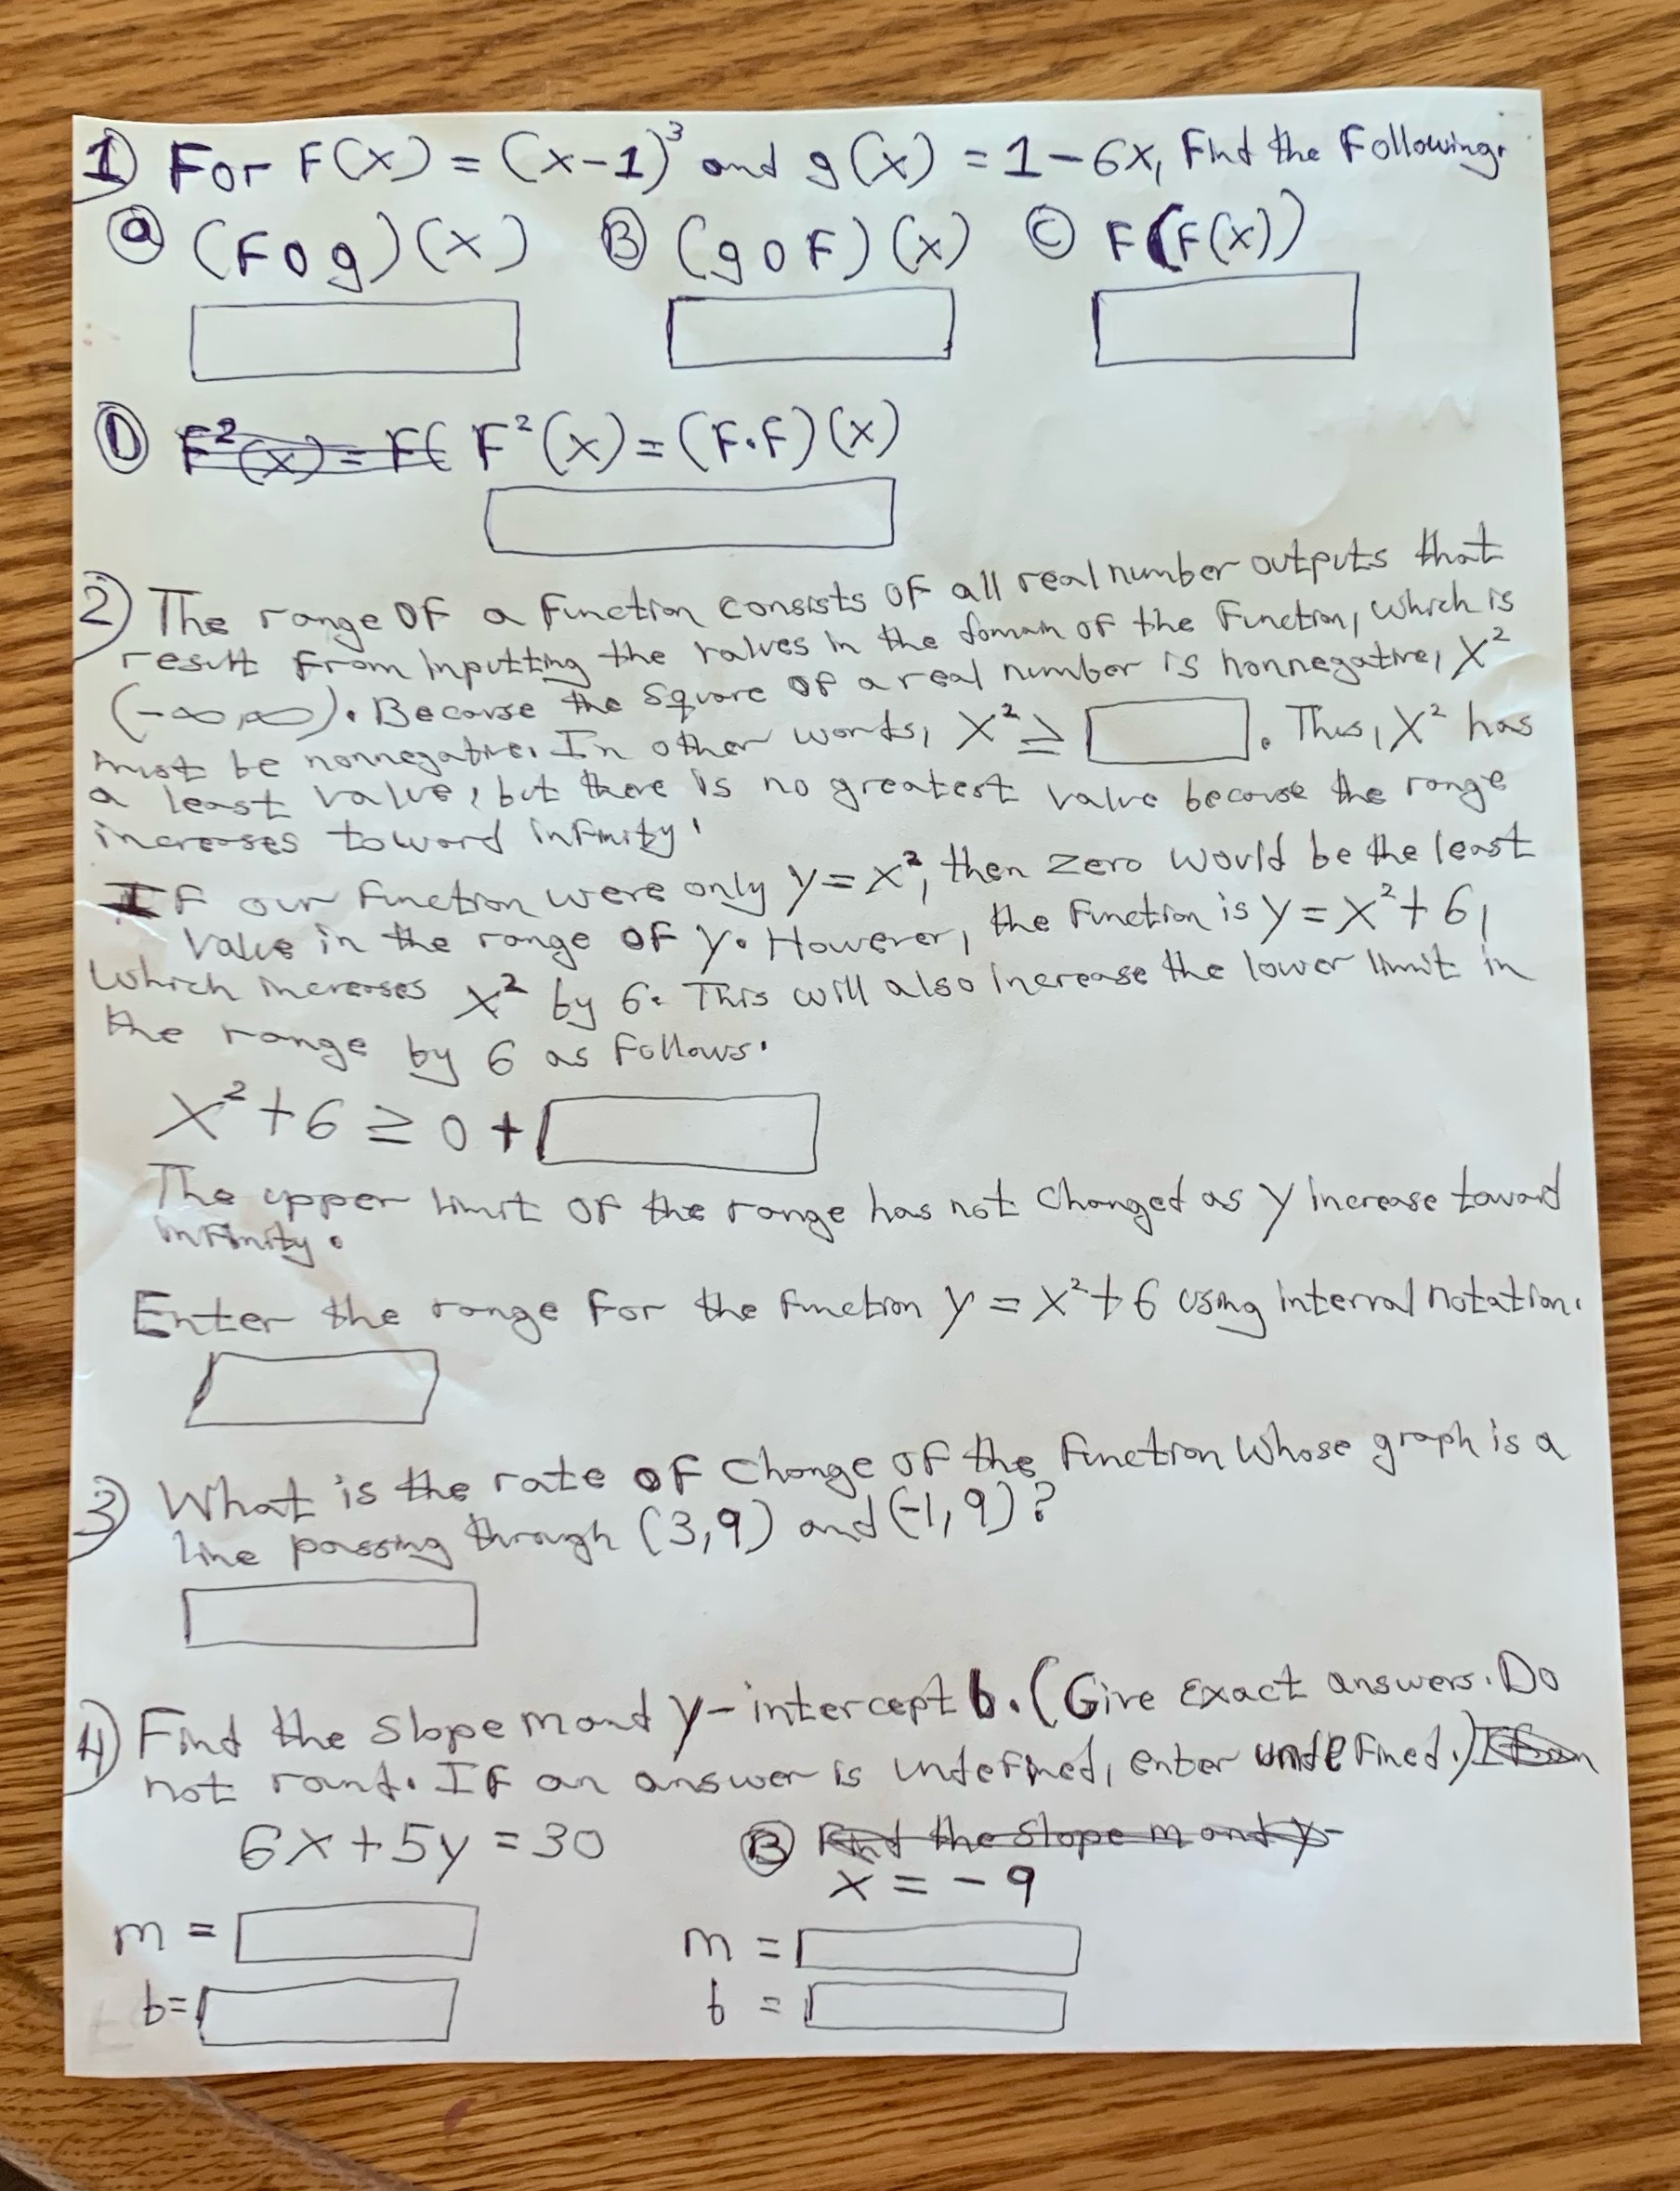 1) For F(x) = (x-1)³ and g(x) = 1-6x, Find the Following.
ⓐ (F o g)(x) Ⓑ (g o F)(x) Ⓒ F(F(x))
Ⓓ F²(x) = F( F²(x) = (F·F)(x)
2) The range of a function consists of all real number outputs that
result from inputting the values in the domain of the function, which is
(-∞,∞). Because the square of a real number is nonnegative, X²
must be nonnegative. In other words, X² ≥ . Thus, X² has
a least value, but there is no greatest value because the range
increases toward infinity.
If our function were only y = x², then zero would be the least
value in the range of y. However, the function is y = x² + 6,
which increases x² by 6. This will also increase the lower limit in
the range by 6 as follows.
x² + 6 ≥ 0 +
The upper limit of the range has not changed as y increase toward
infinity.
Enter the range for the function y = x² + 6 using interval notation.
3) What is the rate of change of the function whose graph is a
line passing through (3,9) and (-1,9)?
4) Find the slope m and y-intercept b. (Give exact answers. Do
not round. If an answer is undefined, enter undefined.)
6x + 5y = 30 Ⓑ Find the slope m and y-
x = -9
m = m =
b = b =